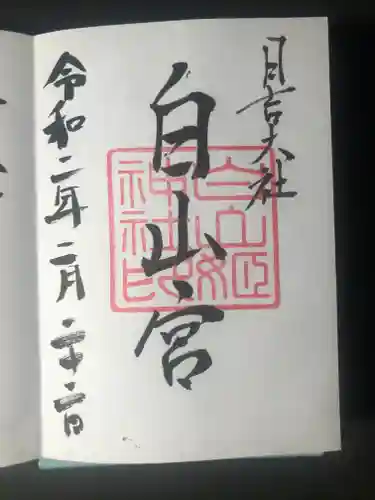 日吉大社
白山宮
白山姫
神社印
令和二年二月二十二日